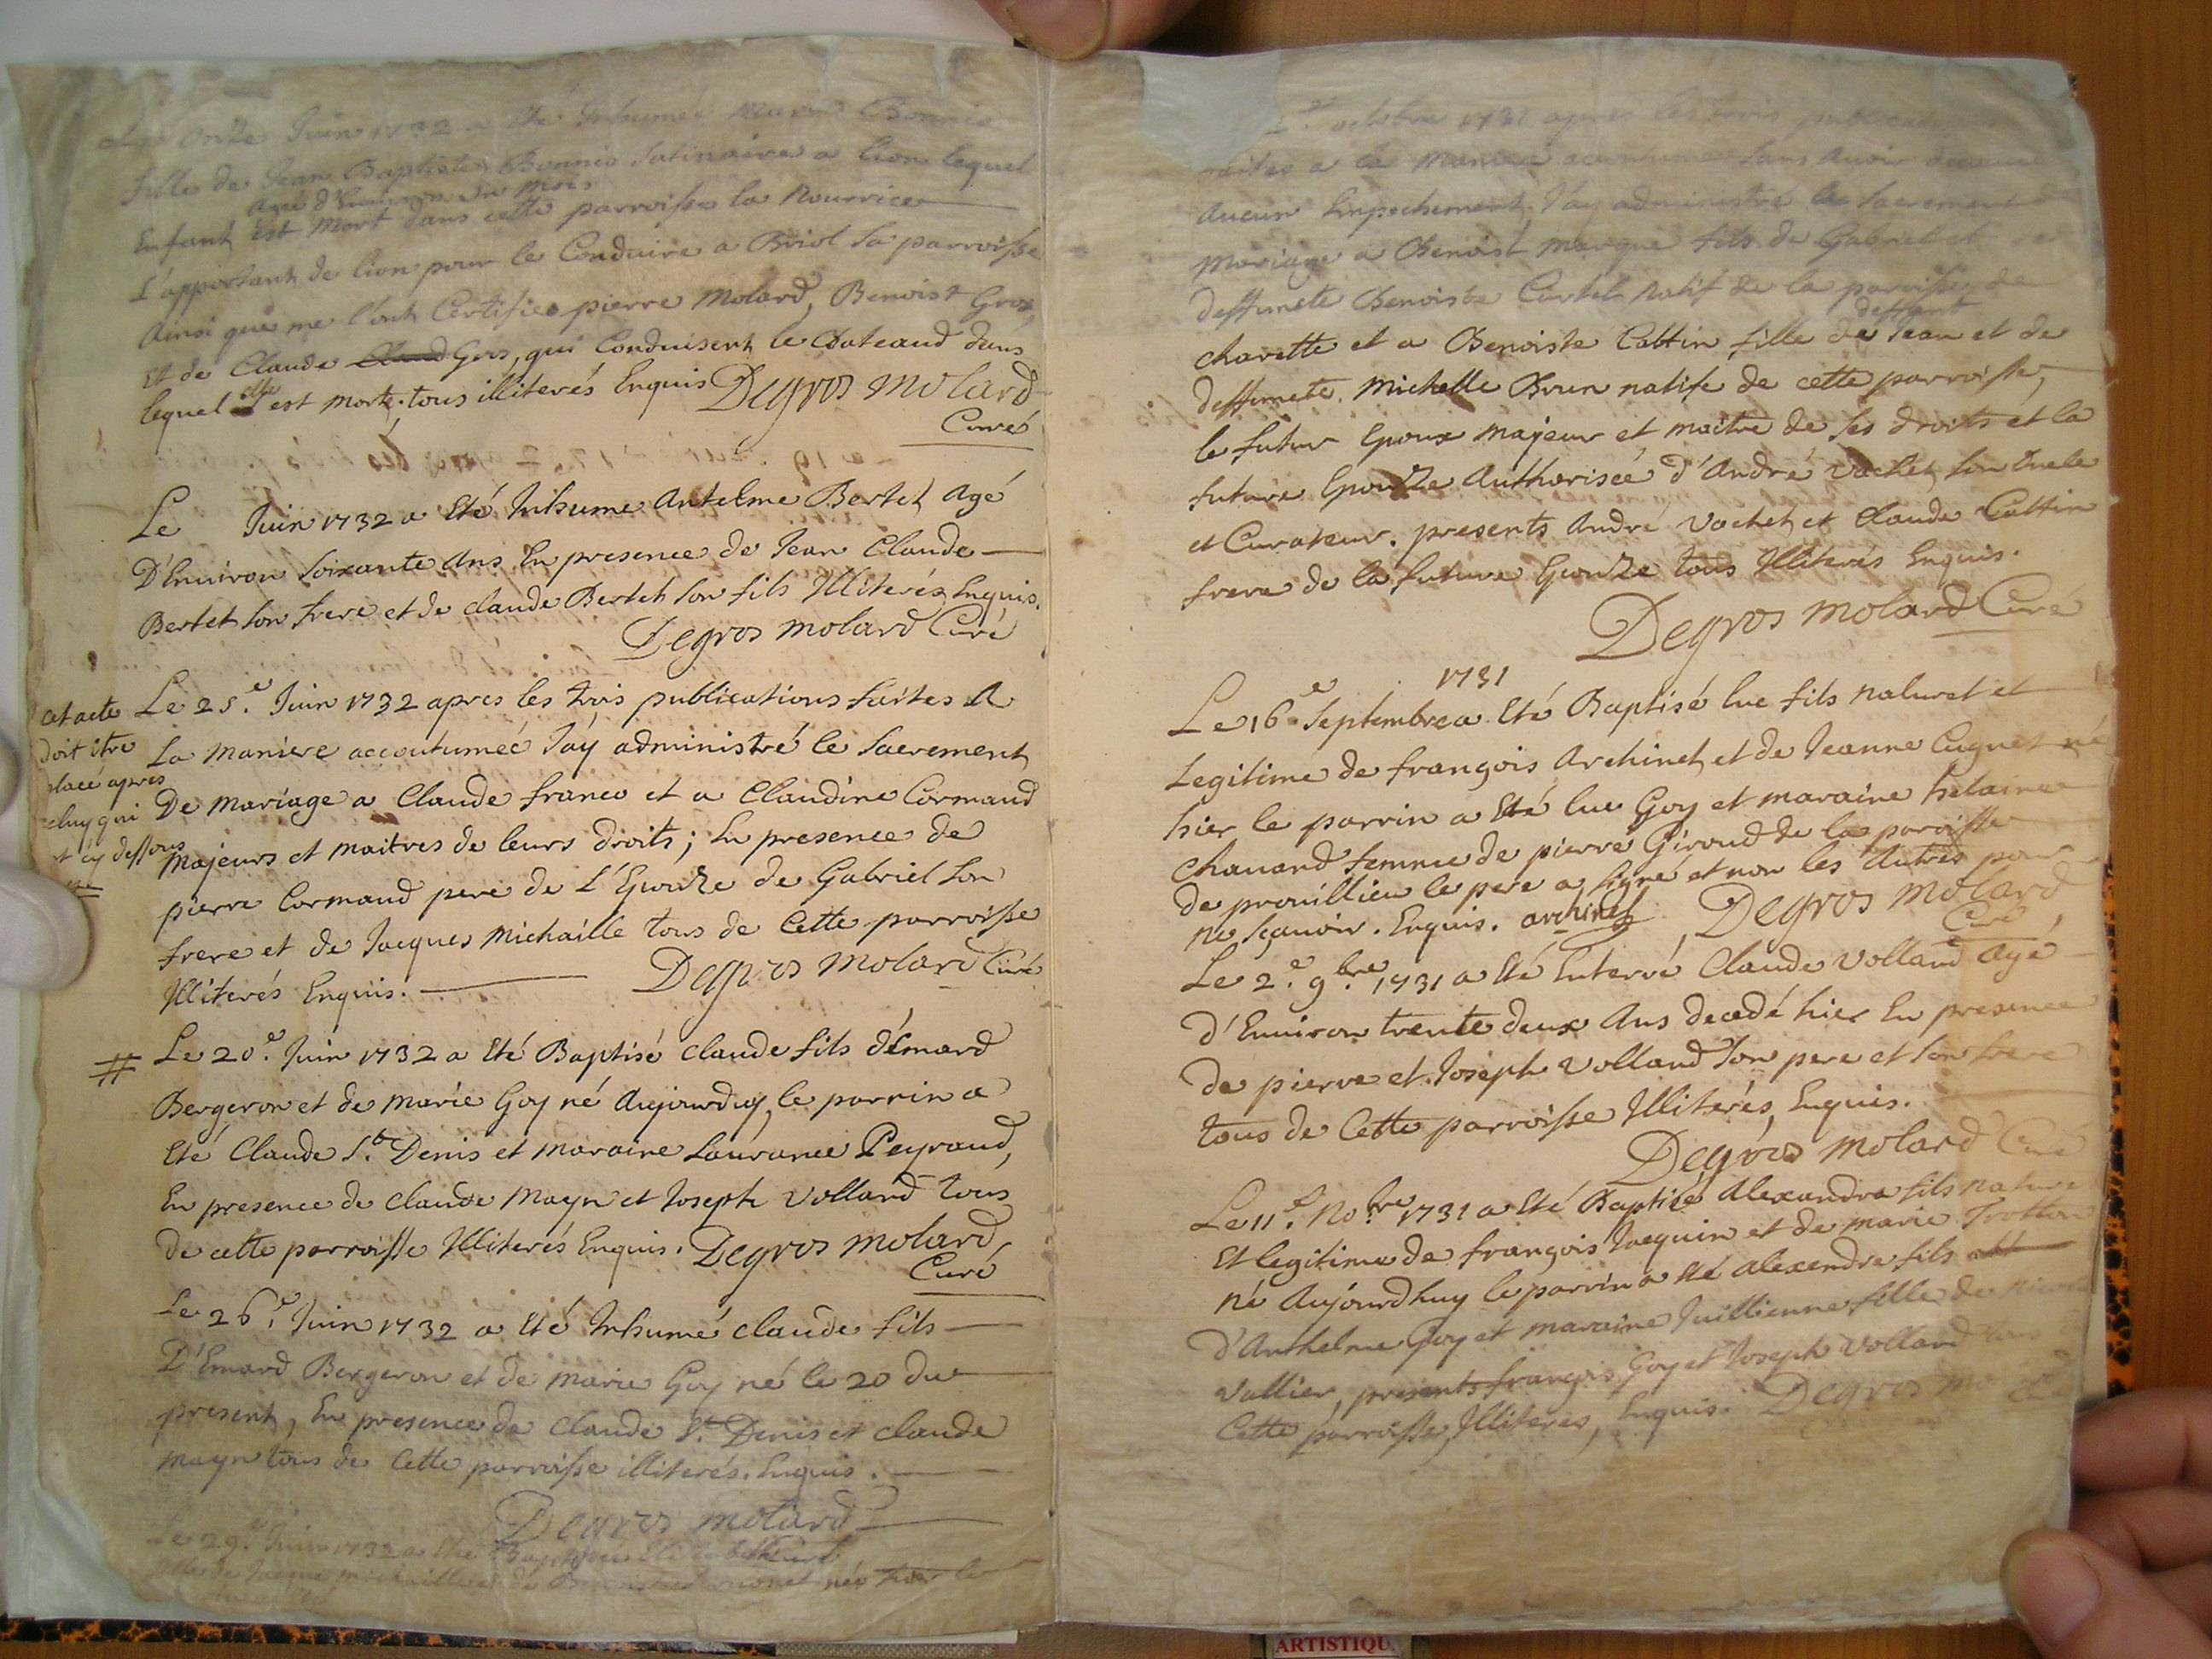 Le Onze Juin 1732 a Eté Inhumée Bonnis
fille de Jean Baptiste Bonnis Satinaire a lion lequel
agée d'Environ un mois
Enfant Est Mort dans cette parroisse la Nourrice
L'apportant de lion pour le Conduire a Briol Sa parroisse
Ainsi que me l'ont Certifies pierre Molard, Benoist Gros,
Et de Claude Gers, qui Conduisent le Bateaud dans
lequel elle est morte. tous illiterés Enquis Degros Molard
Curé
Le Juin 1732 a Eté Inhume Antelme Bertet Agé
D'Environ Soixante Ans En presence de Jean Claude
Bertet son frere et de claude Bertet Son fils Illiterés Enquis.
Degros Molard Curé
cet acte
doit itre
placé apres
celuy qui
est cy dessous
Le 25e. Juin 1732 apres les trois publications faites A
La Maniere accoutumeé J'ay administré le Sacrement
De Mariage a Claude franco et a Claudine Cormaud
Majeurs et maitres de leurs droits; En presence de
pierre Cormaud pere de L'Epouze de Gabriel Son
frere et de Jacques Michaille tous de Cette parroisse
Illiterés Enquis. Degros Molard Curé
# Le 20e. Juin 1732 a Eté Baptisé Claude fils d'Emard
Bergeron et de Marie Goy né Aujourduy, le parrin a
Eté Claude St. Denis et Maraine Laurance Peyraud,
En presence de Claude Mayn et Joseph Vollard tous
de cette parroisse Illiterés Enquis. Degros Molard
Curé
Le 26e. Juin 1732 a Eté Inhumé claude fils
D'Emard Bergeron et de Marie Goy né le 20 du
present, En presence de Claude St. Denis et claude
Mayn tous de Cette parroisse illiterés. Enquis.
Degros Molard
Le 29e. Juin 1732 a Eté
Michaille et de née hier le
octobre 1731 apres les trois
faites a la Maniere Sans Avoir
Aucun Empechement, J'ay administré le Sacrement
Mariage a Benoist Marque fils de Gabriel et
deffuncte Benoiste Curtet Natif de la parroisse de
deffunt
charette et a Benoiste Cattin fille de Jean et de
deffuncte Michelle Brun native de cette parroisse,
le futur Epoux Majeur et maitre de ses droits et la
future Epouze Authorisée d'André Vachet son tutele
et Curateur. presents André Vachet et Claude Cattin
frere de la future Epouze tous Illiterés Enquis.
Degros Molard Curé
1731
Le 16e Septembre a Eté Baptisé luc fils naturel et
Legitime de françois Archinet et de Jeanne Cugnet né
hier le parrin a Eté luc Goy et maraine helaine
Chanard femme de pierre Giroud de la parroisse
de prouillieu le pere a signé et non les Autres pour
ne sçauoir. Enquis. archinet Degros Molard
Curé
Le 2e. 9bre. 1731 a Eté Enterré Claude Vollard Agé
d'Environ trente deux Ans decedé hier En presence
de pierre et Joseph Vollard Son pere et son frere
tous de Cette parroisse Illiterés, Enquis.
Degros Molard Curé
Le 11e. Nobre 1731 a Eté Baptisé Alexandre fils nature
Et legitime de françois Jacquin et de marie Trotton
né Aujourdhuy le parrin a Eté Alexendre fils
d'Anthelme Goy et maraine Juillienne fille de
Vallier, presents françois Goy et Joseph Vollard
Cette parroisse, Illiteres, Enquis. Degros
ARTISTIQU